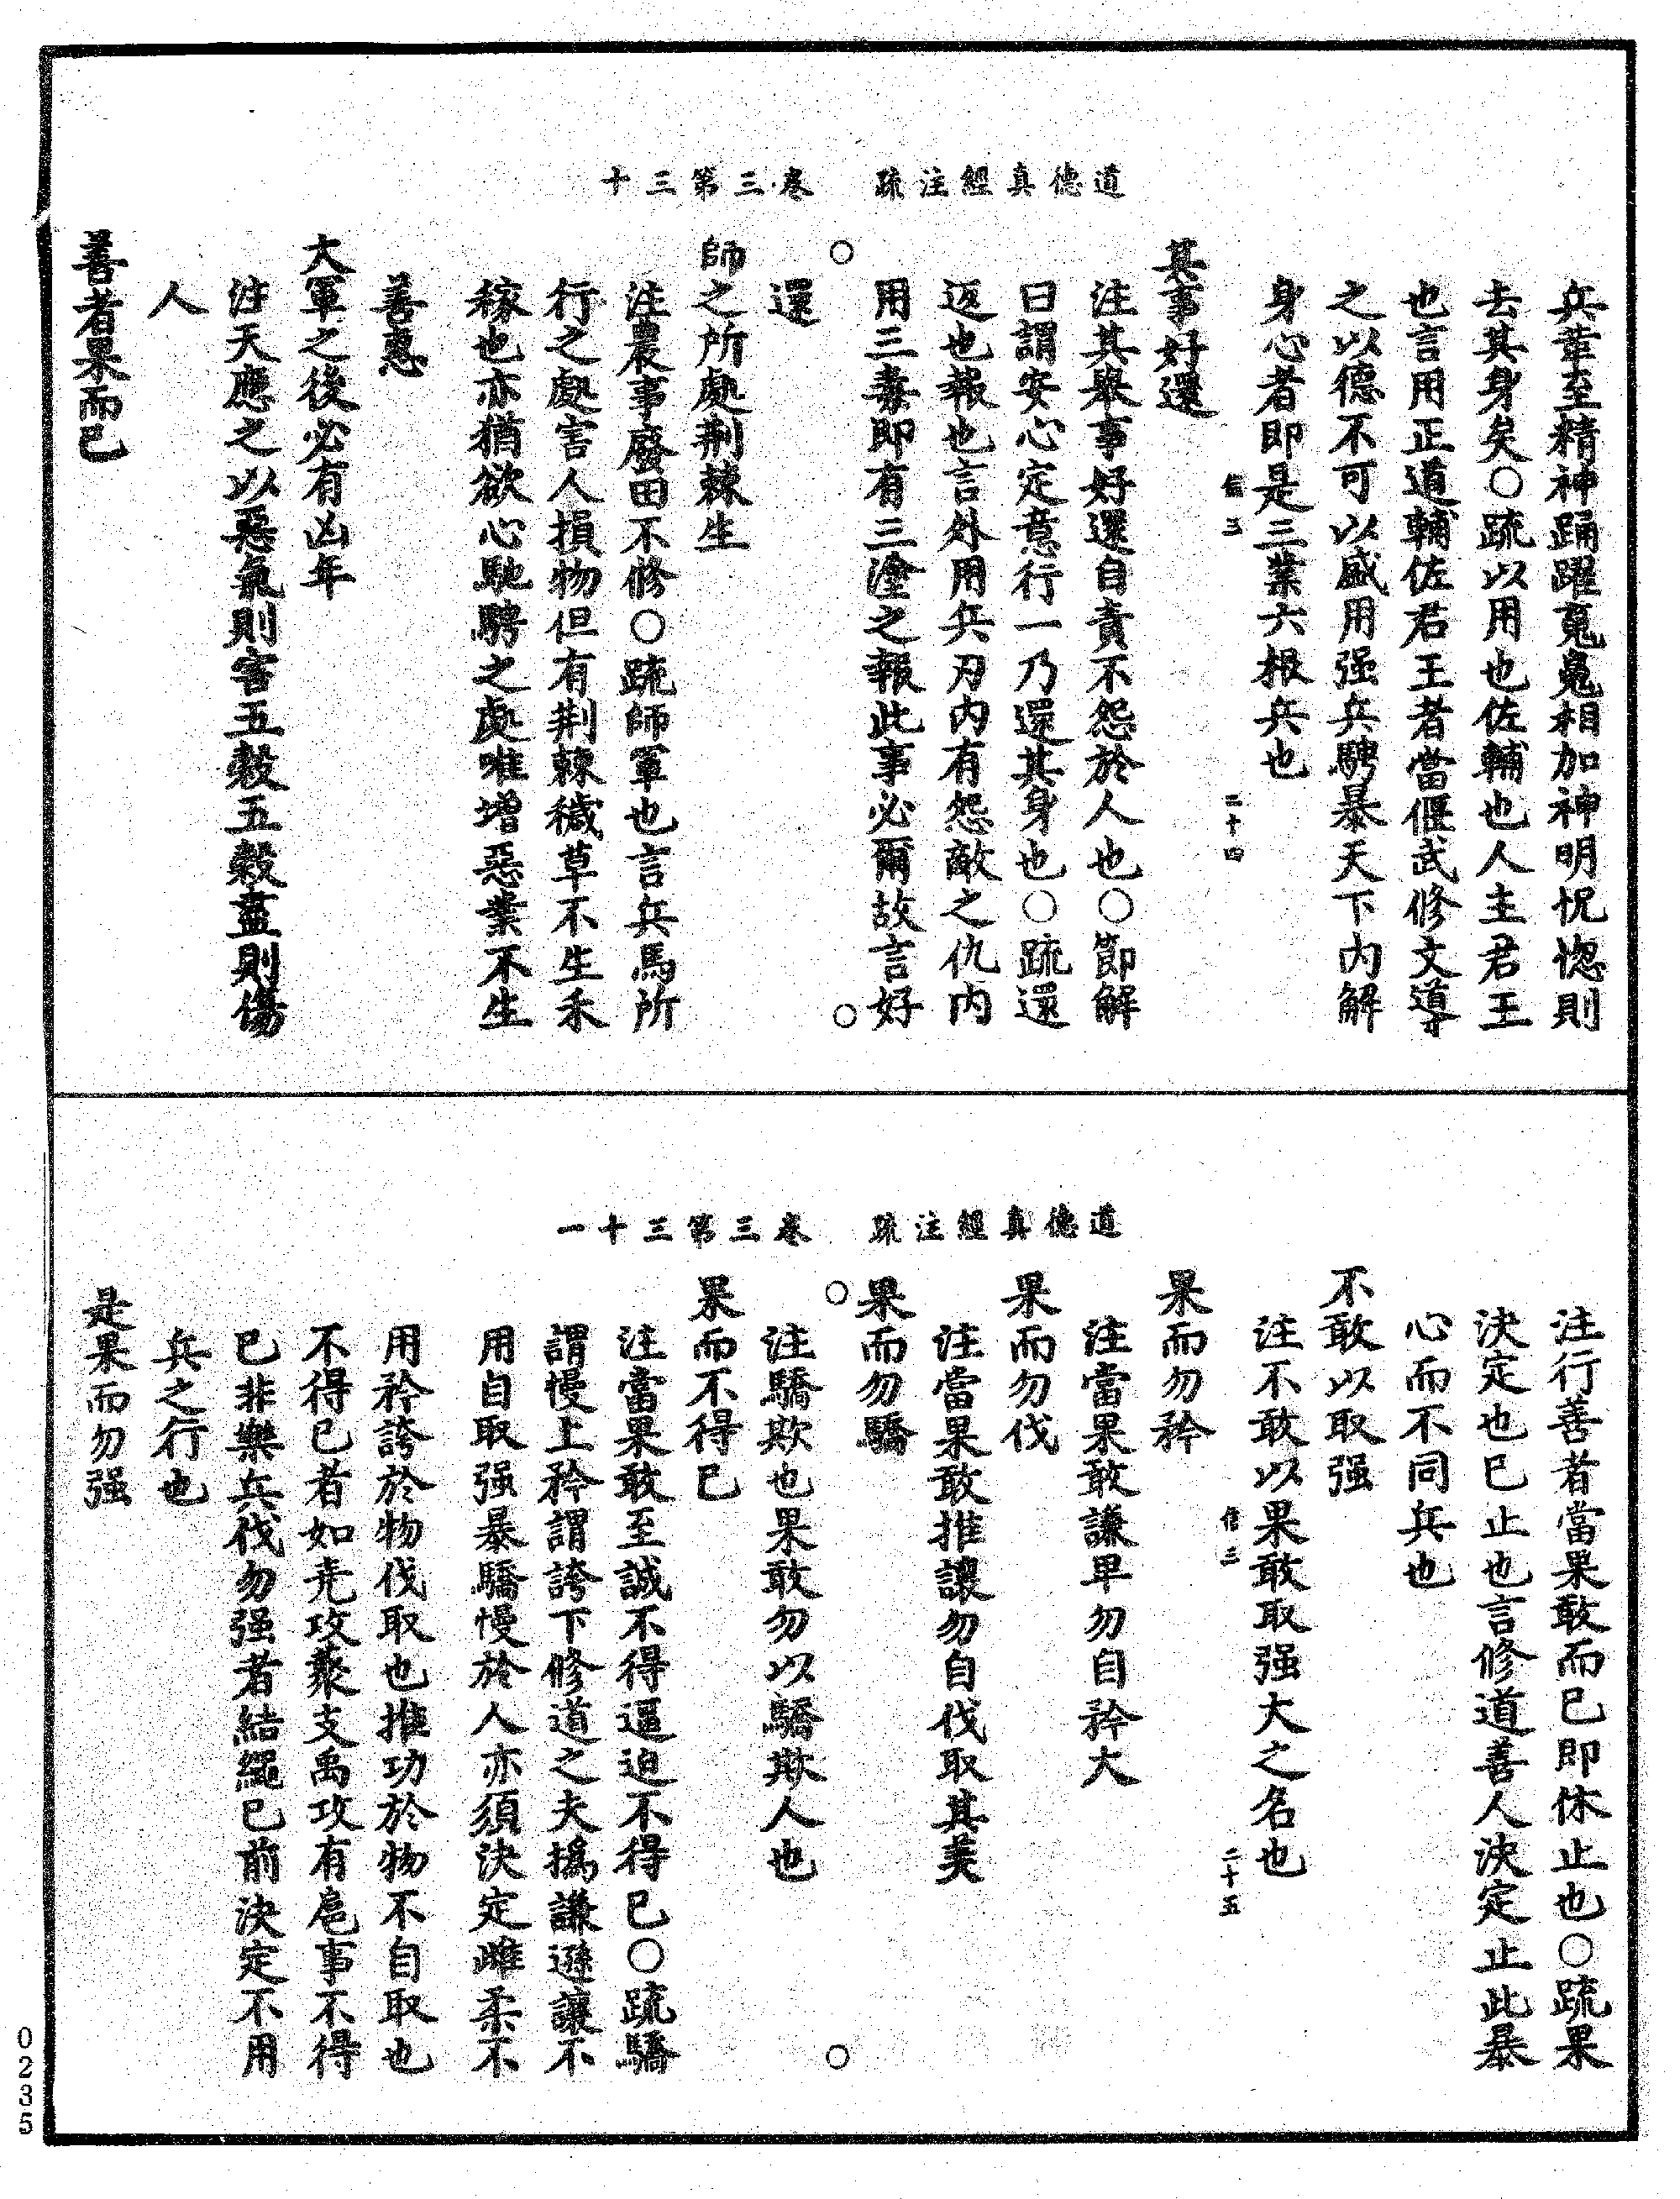 道德真經注疏　卷三第三十
兵革至精神踊躍䰟鬼相加神明怳惚則
去其身矣○疏以用也佐輔也人主君王
也言用正道輔佐君王者當偃武修文導
之以德不可以盛用强兵騁暴天下内解
身心者即是三業六根兵也
信三　二十四
其事好還
注其舉事好還自責不怨於人也○節解
曰謂安心定意行一乃還其身也○疏還
返也報也言外用兵刃内有怨敵之仇内
用三毒即有三塗之報此事必爾故言好
還
師之所處荆棘生
注農事廢田不修○疏師軍也言兵馬所
行之處害人損物但有荆棘穢草不生禾
稼也亦猶欲心馳騁之處唯增惡業不生
善惠
大軍之後必有凶年
注天應之以惡氣則害五穀五穀盡則傷
人
善者果而已
道德真經注疏　卷三第三十一
注行善者當果敢而已即休止也○疏果
決定也已止也言修道善人決定止此暴
心而不同兵也
不敢以取强
注不敢以果敢取强大之名也
信三　二十五
果而勿矜
注當果敢謙卑勿自矜大
果而勿伐
注當果敢推讓勿自伐取其美
果而勿驕
注驕欺也果敢勿以驕欺人也
果而不得已
注當果敢至誠不得逼迫不得已○疏驕
謂慢上矜謂誇下修道之夫撝謙遜讓不
用自取强暴驕慢於人亦須決定雌柔不
用矜誇於物伐取也推功於物不自取也
不得已者如尭攻藂支禹攻有扈事不得
已非樂兵伐勿强者結繩已前決定不用
兵之行也
是果而勿强
0235